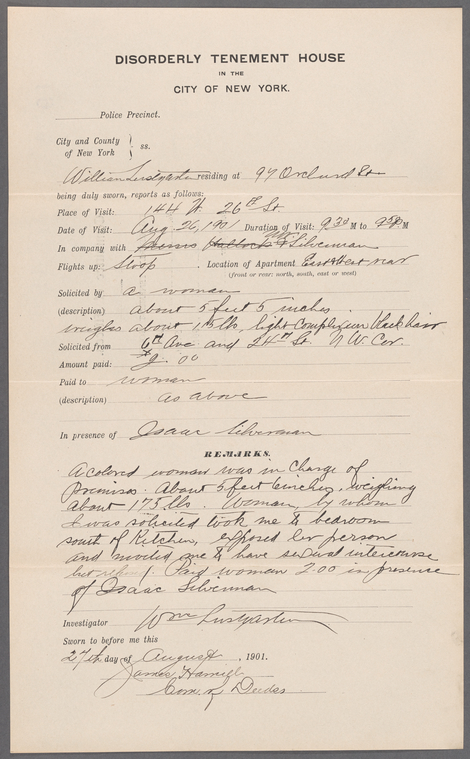 DISORDERLY TENEMENT HOUSE
IN THE
CITY OF NEW YORK.
Police Precinct.
City and County
of New York } ss.
William Lustgarten residing at 97 Orchard St
being duly sworn, reports as follows:
Place of Visit: 144 W 26th St
Date of Visit: Aug 26, 1901 Duration of Visit: 9 30 M to 9 50 M
In company with Silverman
Flights up: Stoop . Location of Apartment rear
(front or rear: north, south, east or west)
Solicited by a woman
(description) about 5 feet 5 inches
weighs about lbs, light Complexion black hair
Solicited from 6th Ave and 24th St. N.W. Cor.
Amount paid: $2.00
Paid to woman
(description) as above
In presence of Isaac Silverman
REMARKS.
A colored woman was in charge of
premises. About 5 feet 6 inches, weighing
about 175 lbs. Woman, by whom
I was solicited took me to bedroom
south of Kitchen, exposed her person
and invited me to have sexual intercourse
but Paid woman 2.00 in presence
of Isaac Silverman
Investigator Wm Lustgarten
Sworn to before me this
27th day of August, 1901.
James Hamill
Com. of Deeds